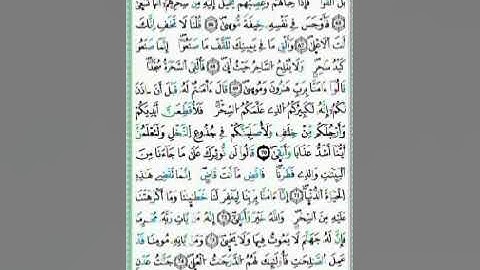 بَلَ اَلْقُوا فَإِذَا حِبَالُهُمْ وَعِصِيُّهُمْ يُخَيَّلُ إِلَيْهِ مِن سِحْرِهِمُ أَنَّهَا تَسْعَىٰ
فَأَوْجَسَ فِي نَفْسِهِ خِيفَةً مُّوسَىٰ قُلْنَا لَا تَخَفِ اِنَّكَ
أَنتَ اَلْأَعْلَىٰ وَأَلْقِ مَا فِي يَمِينِكَ تَلَقَّفْ مَا صَنَعُوا إِنَّمَا صَنَعُوا
كَيْدُ سَٰحِرٍ وَلَا يُفْلِحُ اُلسَّاحِرُ حَيْثُ أَتَىٰ فَأُلْقِيَ اَلسَّحَرَةُ سُجَّدًا
قَالُوا ءَامَنَّا بِرَبِّ هَٰرُونَ وَمُوسَىٰ قَالَ ءَا۬مَنتُمْ لَهُ قَبْلَ أَنْ ءَاذَنَ
لَكُمْ إِنَّهُ لَكَبِيرُكُمُ اُلذِي عَلَّمَكُمُ اُلسِّحْرَ فَلَأُقَطِّعَنَّ أَيْدِيَكُمْ
وَأَرْجُلَكُم مِّنْ خِلَٰفٍ وَلَأُصَلِّبَنَّكُمْ فِي جُذُوعِ اِلنَّخْلِ وَلَتَعْلَمُنَّ
أَيُّنَا أَشَدُّ عَذَابًا وَأَبْقَىٰ قَالُوا لَن نُّوثِرَكَ عَلَىٰ مَا جَآءَنَا مِنَ
اَلْبَيِّنَٰتِ وَالذِي فَطَرَنَا فَاقْضِ مَا أَنتَ قَاضٍ اِنَّمَا تَقْضِي هَٰذِهِ
اِلْحَيَوٰةَ اَلدُّنْيَا إِنَّا ءَامَنَّا بِرَبِّنَا لِيَغْفِرَ لَنَا خَطَٰيَٰنَا وَمَا أَكْرَهْتَنَا
عَلَيْهِ مِنَ اَلسِّحْرِ وَاللَّهُ خَيْرٌ وَأَبْقَىٰ إِنَّهُ مَنْ يَّاتِ رَبَّهُ مُجْرِمًا
فَإِنَّ لَهُ جَهَنَّمَ لَا يَمُوتُ فِيهَا وَلَا يَحْيَىٰ وَمَنْ يَّاتِهِ مُومِنًا قَدْ
عَمِلَ اَلصَّٰلِحَٰتِ فَأُوْلَٰئِكَ لَهُمُ اُلدَّرَجَٰتُ اُلْعُلَىٰ جَنَّٰتُ عَدْنٍ